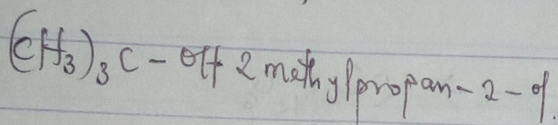 (CH₃)₃C - OH 2 methylpropan-2-ol.